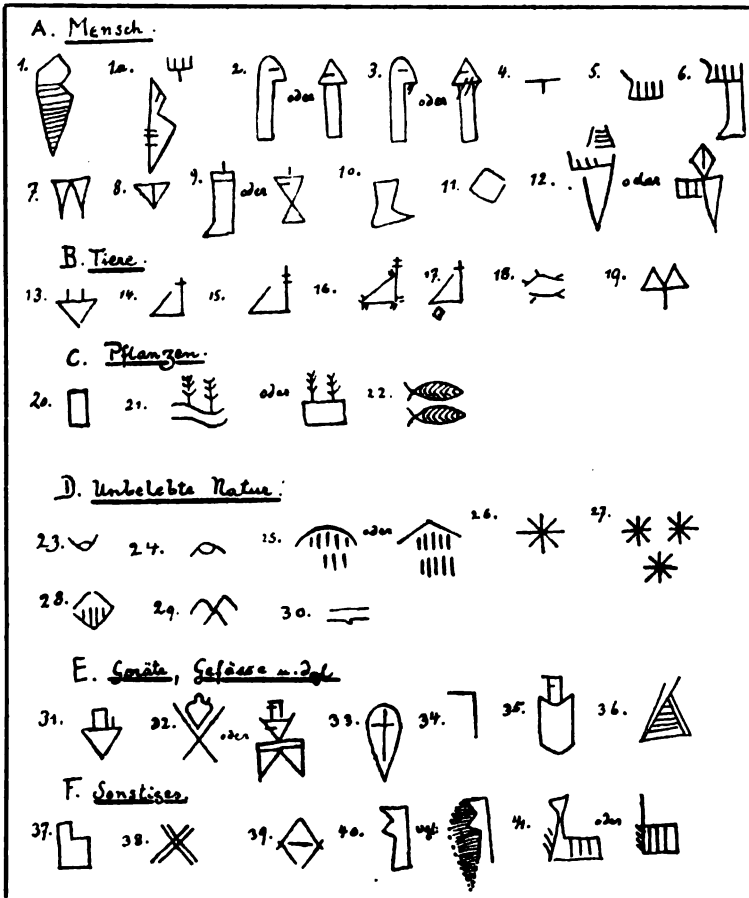 A. Mensch.
1. 1a. 2. oder 3. oder 4. 5. 6.
7. 8. 9. oder 10. 11. 12. oder
B. Tiere.
13. 14. 15. 16. 17. 18. 19.
C. Pflanzen.
20. 21. oder 22.
D. Unbelebte Natur:
23. 24. 25. oder 26. 27.
28. 29. 30.
E. Geräte, Gefässe u. dgl.
31. 32. oder 33. 34. 35. 36.
F. Sonstiges
37. 38. 39. 40. vgl. 41. oder